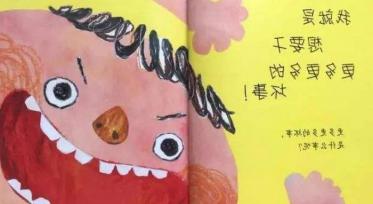 我就是
想要干
更多更多的
坏事!
更多更多的坏事，
是什么事呢?